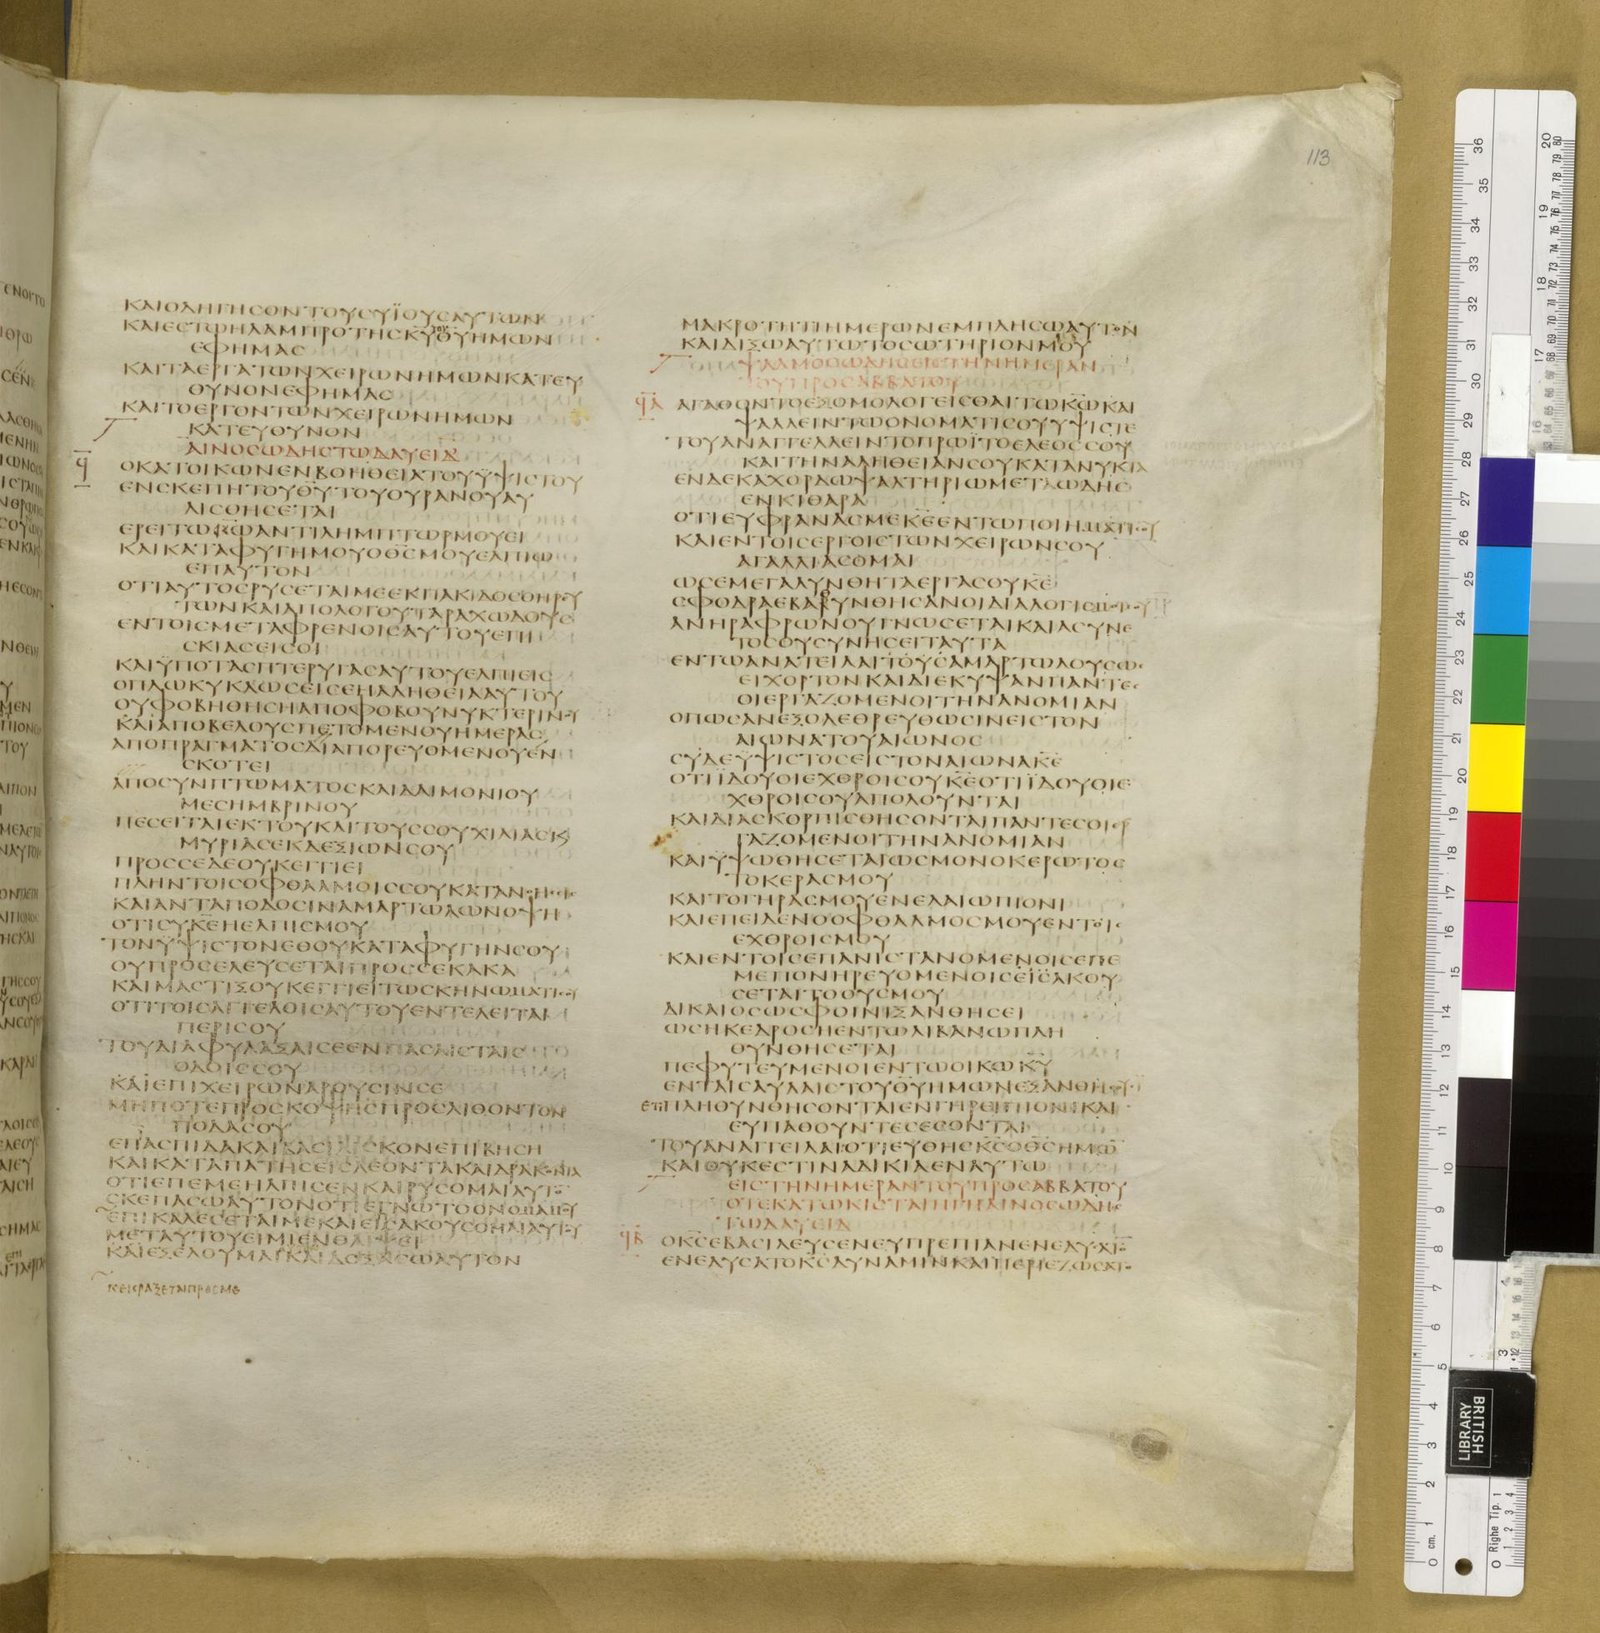 113
ΚΑΙΟΔΗΓΗϹΟΝΤΟΥϹΥΪΟΥϹΑΥΤΩΝ
ΚΑΙΕϹΤΩΗΛΑΜΠΡΟΤΗϹΚΥΤΟΥΘΥΗΜΩΝ
ΕΦΗΜΑϹ
ΚΑΙΤΑΕΡΓΑΤΩΝΧΕΙΡΩΝΗΜΩΝΚΑΤΕΥ
ΟΥΝΟΝΕΦΗΜΑϹ
ΚΑΙΤΟΕΡΓΟΝΤΩΝΧΕΙΡΩΝΗΜΩΝ
ΚΑΤΕΥΘΥΝΟΝ
ΑΙΝΟϹΩΔΗϹΤΩΔΑΥΕΙΔ
Ϟ
ΟΚΑΤΟΙΚΩΝΕΝΒΟΗΘΕΙΑΤΟΥΫΨΙϹΤΟΥ
ΕΝϹΚΕΠΗΤΟΥΘΥΤΟΥΟΥΡΑΝΟΥΑΥ
ΛΙϹΘΗϹΕΤΑΙ
ΕΡΕΙΤΩΚΩΑΝΤΙΛΗΜΠΤΩΡΜΟΥΕΙ
ΚΑΙΚΑΤΑΦΥΓΗΜΟΥΟΘϹΜΟΥΕΛΠΙΩ
ΕΠΑΥΤΟΝ
ΟΤΙΑΥΤΟϹΡΥϹΕΤΑΙΜΕΕΚΠΑΓΙΔΟϹΘΗΡΕΥ
ΤΩΝΚΑΙΑΠΟΛΟΓΟΥΤΑΡΑΧΩΔΟΥϹ
ΕΝΤΟΙϹΜΕΤΑΦΡΕΝΟΙϹΑΥΤΟΥΕΠΗ
ϹΚΙΑϹΕΙϹΟΙ
ΚΑΙΫΠΟΤΑϹΠΤΕΡΥΓΑϹΑΥΤΟΥΕΛΠΙΕΙϹ
ΟΠΛΩΚΥΚΛΩϹΕΙϹΕΗΑΛΗΘΕΙΑΑΥΤΟΥ
ΟΥΦΟΒΗΘΗϹΗΑΠΟΦΟΒΟΥΝΥΚΤΕΡΙΝΟΥ
ΚΑΙΑΠΟΒΕΛΟΥϹΠΕΤΟΜΕΝΟΥΗΜΕΡΑϹ
ΑΠΟΠΡΑΓΜΑΤΟϹΔΙΑΠΟΡΕΥΟΜΕΝΟΥΕΝ
ϹΚΟΤΕΙ
ΑΠΟϹΥΝΠΤΩΜΑΤΟϹΚΑΙΔΑΙΜΟΝΙΟΥ
ΜΕϹΗΜΒΡΙΝΟΥ
ΠΕϹΕΙΤΑΙΕΚΤΟΥΚΛΙΤΟΥϹϹΟΥΧΙΛΙΑϹΚ
ΜΥΡΙΑϹΕΚΔΕΞΙΩΝϹΟΥ
ΠΡΟϹϹΕΔΕΟΥΚΕΓΓΙΕΙ
ΠΛΗΝΤΟΙϹΟΦΘΑΛΜΟΙϹϹΟΥΚΑΤΑΝΟΗϹΙϹ
ΚΑΙΑΝΤΑΠΟΔΟϹΙΝΑΜΑΡΤΩΛΩΝΟΨΗ
ΟΤΙϹΥΚΕΗΕΛΠΙϹΜΟΥ
ΤΟΝΫΨΙϹΤΟΝΕΘΟΥΚΑΤΑΦΥΓΗΝϹΟΥ
ΟΥΠΡΟϹΕΛΕΥϹΕΤΑΙΠΡΟϹϹΕΚΑΚΑ
ΚΑΙΜΑϹΤΙΞΟΥΚΕΓΓΙΕΙΤΩϹΚΗΝΩΜΑΤΙϹΟΥ
ΟΤΙΤΟΙϹΑΓΓΕΛΟΙϹΑΥΤΟΥΕΝΤΕΛΕΙΤΑΙ
ΠΕΡΙϹΟΥ
ΤΟΥΔΙΑΦΥΛΑΞΑΙϹΕΕΝΠΑϹΑΙϹΤΑΙϹ
ΟΔΟΙϹϹΟΥ
ΚΑΙΕΠΙΧΕΙΡΩΝΑΡΟΥϹΙΝϹΕ
ΜΗΠΟΤΕΠΡΟϹΚΟΨΗϹΠΡΟϹΛΙΘΟΝΤΟΝ
ΠΟΔΑϹΟΥ
ΕΠΑϹΠΙΔΑΚΑΙΒΑϹΙΛΙϹΚΟΝΕΠΙΒΗϹΗ
ΚΑΙΚΑΤΑΠΑΤΗϹΕΙϹΛΕΟΝΤΑΚΑΙΔΡΑΚΟΝΤΑ
ΟΤΙΕΠΕΜΕΗΛΠΙϹΕΝΚΑΙΡΥϹΟΜΑΙΑΥΤΟ
ϹΚΕΠΑϹΩΑΥΤΟΝΟΤΙΕΓΝΩΤΟΟΝΟΜΑΜΟΥ
ΕΠΙΚΑΛΕϹΕΤΑΙΜΕΚΑΙΕΙϹΑΚΟΥϹΟΜΑΙΑΥΤΟΥ
ΜΕΤΑΥΤΟΥΕΙΜΙΕΝΘΛΙΨΕΙ
ΚΑΙΕΞΕΛΟΥΜΑΙΚΑΙΔΟΞΑϹΩΑΥΤΟΝ
ΚΕΚΡΑΞΕΤΑΙΠΡΟϹΜΕ
ΜΑΚΡΟΤΗΤΙΗΜΕΡΩΝΕΜΠΛΗϹΩΑΥΤΟΝ
ΚΑΙΔΙΞΩΑΥΤΩΤΟϹΩΤΗΡΙΟΝΜΟΥ
ΨΑΛΜΟϹΩΔΗϹΕΙϹΤΗΝΗΜΕΡΑΝ
ΤΟΥΠΡΟϹΑΒΒΑΤΟΥ
ϞΑ
ΑΓΑΘΟΝΤΟΕΞΟΜΟΛΟΓΕΙϹΘΑΙΤΩΚΩΚΑΙ
ΨΑΛΛΕΙΝΤΩΟΝΟΜΑΤΙϹΟΥΫΨΙϹΤΕ
ΤΟΥΑΝΑΓΓΕΛΛΕΙΝΤΟΠΡΩΪΤΟΕΛΕΟϹϹΟΥ
ΚΑΙΤΗΝΑΛΗΘΕΙΑΝϹΟΥΚΑΤΑΝΥΚΤΑ
ΕΝΔΕΚΑΧΟΡΔΩΨΑΛΤΗΡΙΩΜΕΤΩΔΗϹ
ΕΝΚΙΘΑΡΑ
ΟΤΙΕΥΦΡΑΝΑϹΜΕΚΕΕΝΤΩΠΟΙΗΜΑΤΙϹΟΥ
ΚΑΙΕΝΤΟΙϹΕΡΓΟΙϹΤΩΝΧΕΙΡΩΝϹΟΥ
ΑΓΑΛΛΙΑϹΟΜΑΙ
ΩϹΕΜΕΓΑΛΥΝΘΗΤΑΕΡΓΑϹΟΥΚΕ
ϹΦΟΔΡΑΕΒΑΘΥΝΘΗϹΑΝΟΙΔΙΑΛΟΓΙϹΜΟΙϹΟΥ
ΑΝΗΡΑΦΡΩΝΟΥΓΝΩϹΕΤΑΙΚΑΙΑϹΥΝΕ
ΤΟϹΟΥϹΥΝΗϹΕΙΤΑΥΤΑ
ΕΝΤΩΑΝΑΤΕΙΛΑΙΤΟΥϹΑΜΑΡΤΩΛΟΥϹΩϹ
ΕΙΧΟΡΤΟΝΚΑΙΔΙΕΚΥΨΑΝΠΑΝΤΕϹ
ΟΙΕΡΓΑΖΟΜΕΝΟΙΤΗΝΑΝΟΜΙΑΝ
ΟΠΩϹΑΝΕΞΟΛΕΘΡΕΥΘΩϹΙΝΕΙϹΤΟΝ
ΑΙΩΝΑΤΟΥΑΙΩΝΟϹ
ϹΥΔΕΫΨΙϹΤΟϹΕΙϹΤΟΝΑΙΩΝΑΚΕ
ΟΤΙΪΔΟΥΟΙΕΧΘΡΟΙϹΟΥΚΕΟΤΙΪΔΟΥΟΙΕ
ΧΘΡΟΙϹΟΥΑΠΟΛΟΥΝΤΑΙ
ΚΑΙΔΙΑϹΚΟΡΠΙϹΘΗϹΟΝΤΑΙΠΑΝΤΕϹΟΙΕΡ
ΓΑΖΟΜΕΝΟΙΤΗΝΑΝΟΜΙΑΝ
ΚΑΙΫΨΩΘΗϹΕΤΑΙΩϹΜΟΝΟΚΕΡΩΤΟϹ
ΤΟΚΕΡΑϹΜΟΥ
ΚΑΙΤΟΓΗΡΑϹΜΟΥΕΝΕΛΑΙΩΠΙΟΝΙ
ΚΑΙΕΠΕΙΔΕΝΟΟΦΘΑΛΜΟϹΜΟΥΕΝΤΟΙϹ
ΕΧΘΡΟΙϹΜΟΥ
ΚΑΙΕΝΤΟΙϹΕΠΑΝΙϹΤΑΝΟΜΕΝΟΙϹΕΠΕ
ΜΕΠΟΝΗΡΕΥΟΜΕΝΟΙϹΕΙϹΑΚΟΥ
ϹΕΤΑΙΤΟΟΥϹΜΟΥ
ΔΙΚΑΙΟϹΩϹΦΟΙΝΙΞΑΝΘΗϹΕΙ
ΩϹΗΚΕΔΡΟϹΗΕΝΤΩΛΙΒΑΝΩΠΛΗ
ΘΥΝΘΗϹΕΤΑΙ
ΠΕΦΥΤΕΥΜΕΝΟΙΕΝΤΩΟΙΚΩΚΥ
ΕΝΤΑΙϹΑΥΛΑΙϹΤΟΥΘΥΗΜΩΝΕΞΑΝΘΗϹΟΥ
ΕΤΙΠΛΗΘΥΝΘΗϹΟΝΤΑΙΕΝΓΗΡΕΙΠΙΟΝΙΚΑΙ
ΕΥΠΑΘΟΥΝΤΕϹΕϹΟΝΤΑΙ
ΤΟΥΑΝΑΓΓΕΙΛΑΙΟΤΙΕΥΘΗϹΚϹΟΘϹΗΜΩ
ΚΑΙΟΥΚΕϹΤΙΝΑΔΙΚΙΑΕΝΑΥΤΩ
ΕΙϹΤΗΝΗΜΕΡΑΝΤΟΥΠΡΟϹΑΒΒΑΤΟΥ
ΟΤΕΚΑΤΩΚΙϹΤΑΙΗΓΗΑΙΝΟϹΩΔΗϹ
ΤΩΔΑΥΕΙΔ
ϞΒ
ΟΚϹΕΒΑϹΙΛΕΥϹΕΝΕΥΠΡΕΠΙΑΝΕΝΕΔΥϹΑΤΟ
ΕΝΕΔΥϹΑΤΟΚϹΔΥΝΑΜΙΝΚΑΙΠΕΡΙΕΖΩϹΑΤΟ